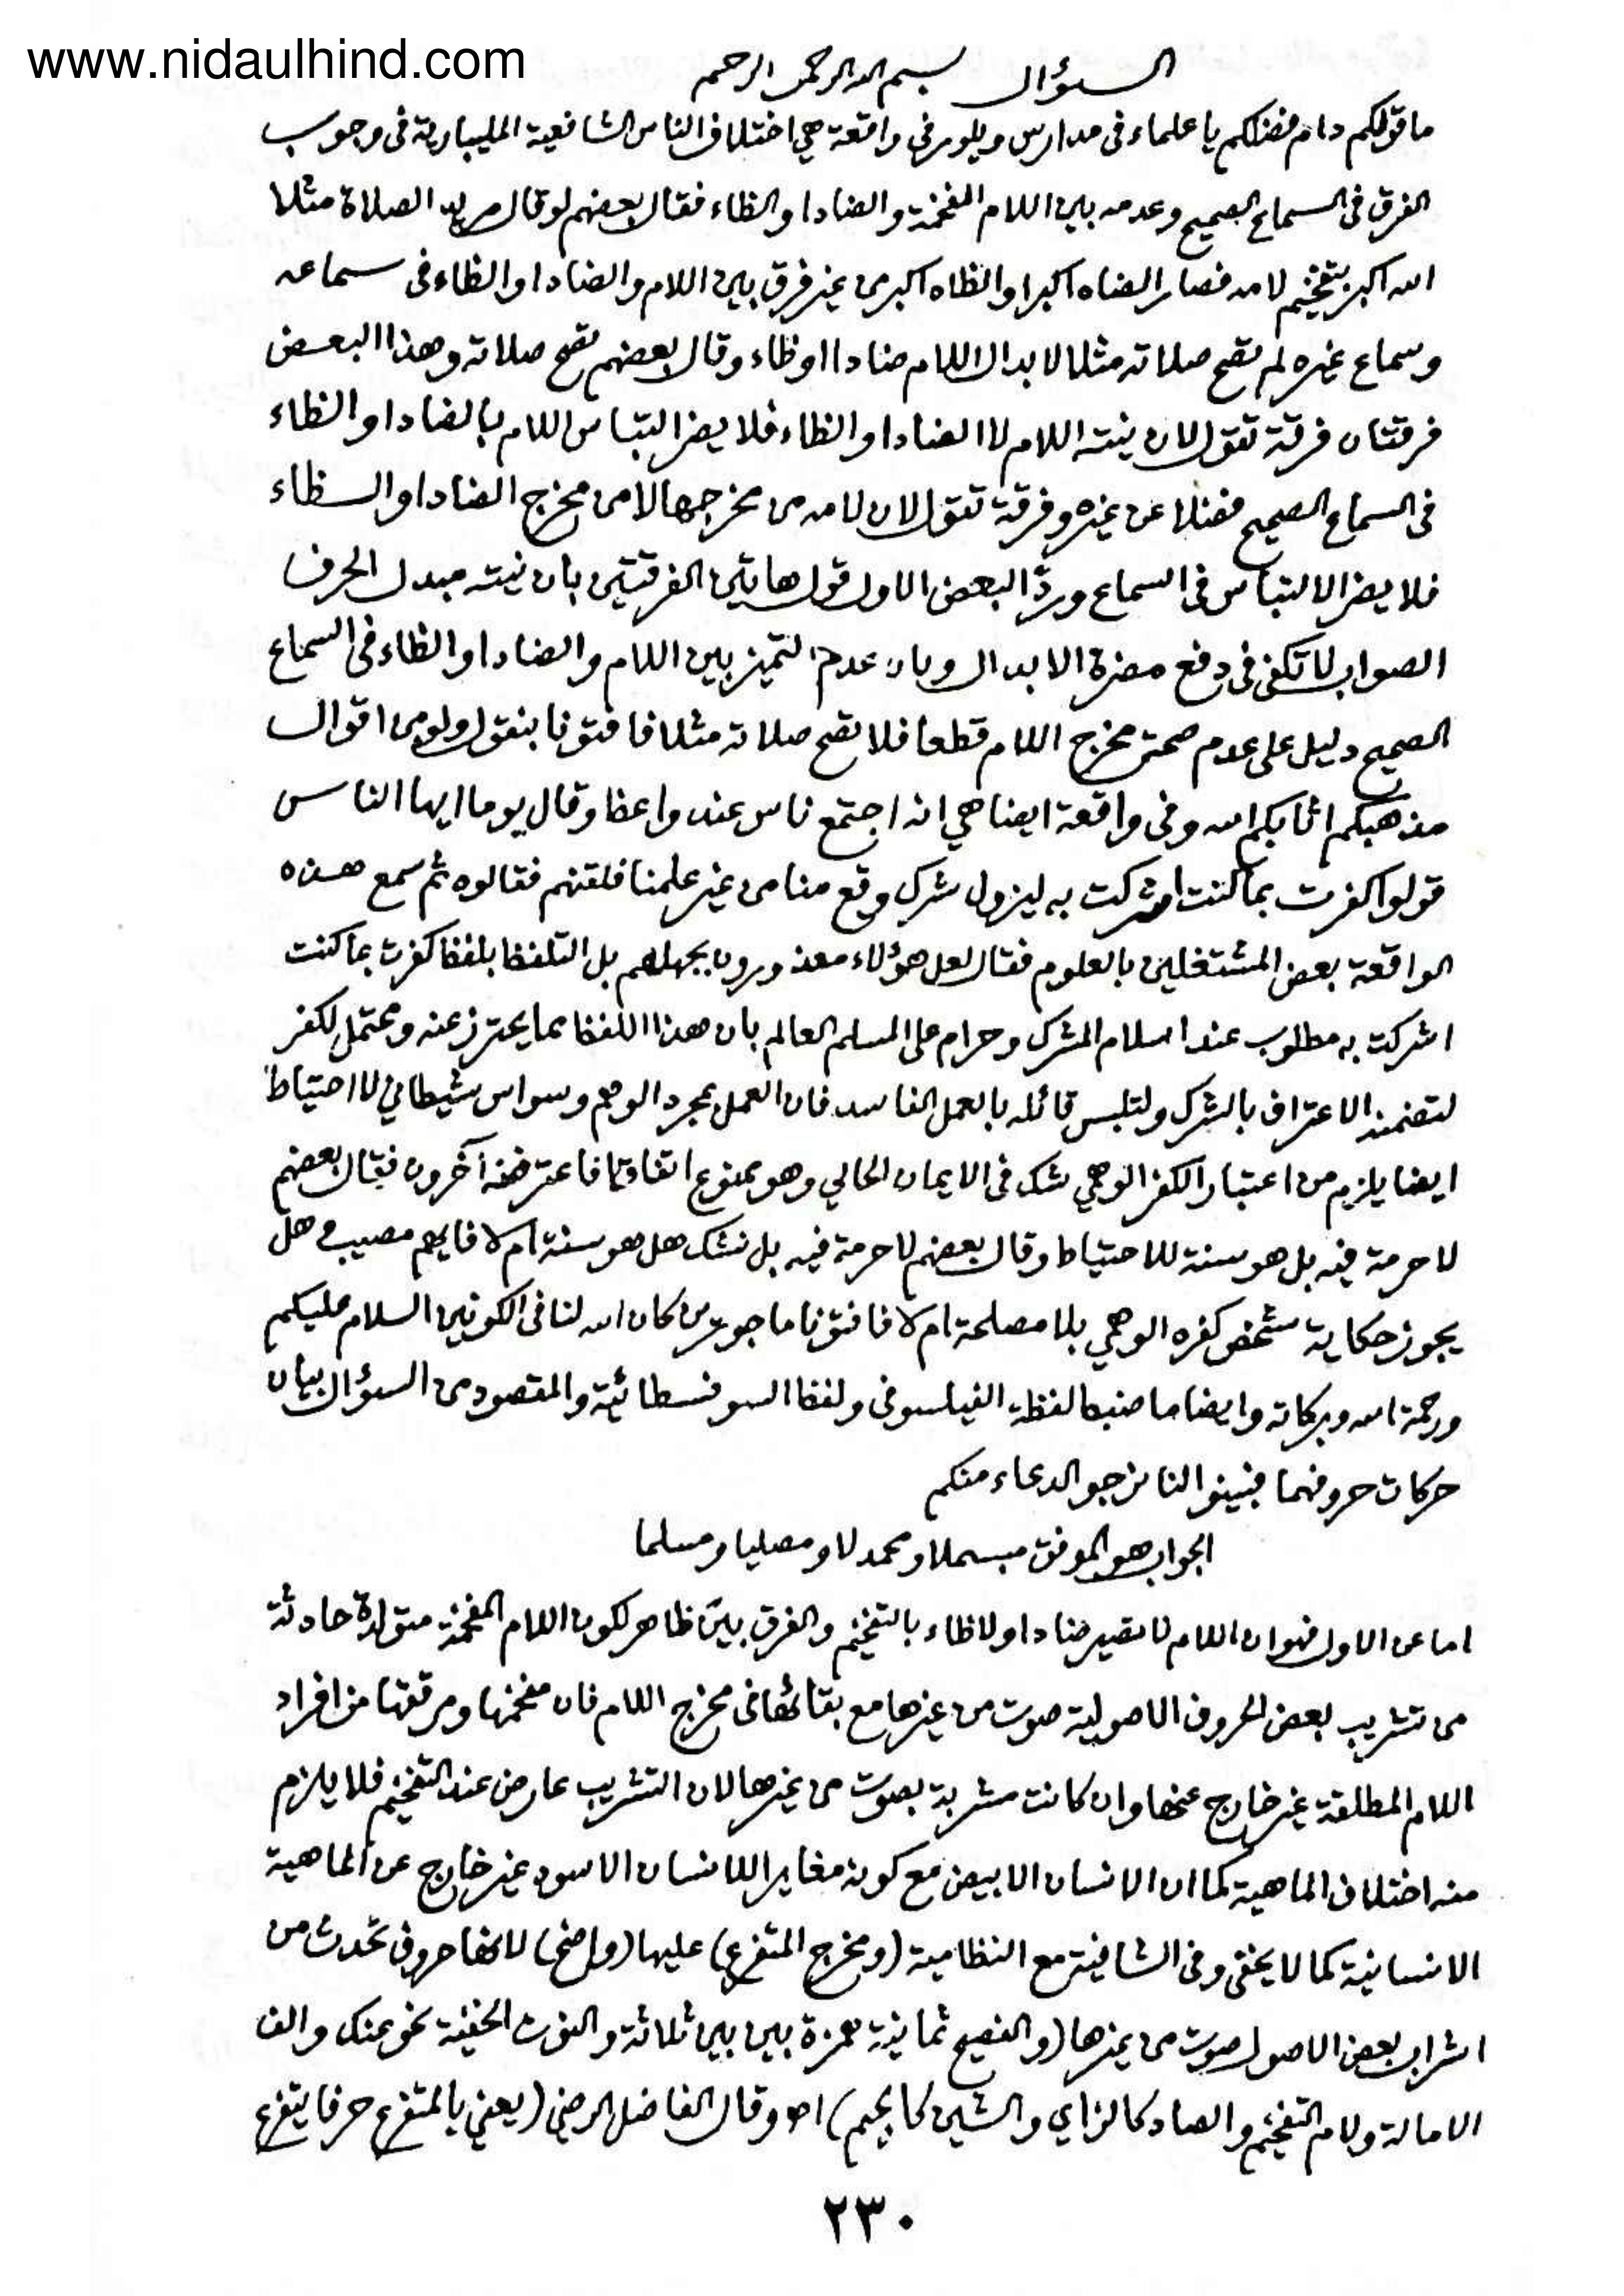 www.nidaulhind.com
السؤال بسم الله الرحمن الرحيم
ما قولكم دام فضلكم يا علماء فى مدارس ويلور فى واقعة هي اختلاف الناس الشافعية المليبارية فى وجوب
الفرق فى السماع الصحيح وعدمه بين اللام المفخمة والضاد او الظاء فقال بعضهم لو قال مريد الصلاة مثلا
الله اكبر بتفخيم لامه فصار الضاه اكبر او الظاه اكبر من غير فرق بين اللام والضاد او الظاء فى سماعه
وسماع غيره لم تصح صلاته مثلا لابدال اللام ضادا او ظاء وقال بعضهم تصح صلاته وهذا البعض
فرقتان فرقة تقول لان نيته اللام لا الضاد او الظاء فلا يضر التباس اللام بالضاد او الظاء
فى السماع الصحيح فضلا عن غيره وفرقة تقول لان لامه من مخرجها لا من مخرج الضاد او الظاء
فلا يضر الالتباس فى السماع وردّ البعض الاول قول هاتين الفرقتين بان نيته مبدل الحرف
الصواب لا تكفى فى دفع مضرة الابدال وبان عدم التميز بين اللام والضاد او الظاء فى السماع
الصحيح دليل على عدم صحة مخرج اللام قطعا فلا تصح صلاته مثلا فافتونا بنقول ولو من اقوال
مذهبكم اثابكم الله وفى واقعة ايضا هي انه اجتمع ناس عند واعظ وقال يوما ايها الناس
قولوا كفرت بما كنت اشركت به ليزول شرك وقع منا من غير علمنا فلقنهم فقالوه ثم سمع هذه
الواقعة بعض المشتغلين بالعلوم فقال لعل هؤلاء معذورون بجهلهم بل التلفظ بلفظ كفرت بما كنت
اشركت به مطلوب عند اسلام المشرك وحرام على المسلم العالم بان هذا اللفظ مما يحترز عنه ومحتمل لكفر
لتضمنه الاعتراف بالشرك ولتلبس قائله بالعمل الفاسد فان العمل بمجرد الوهم وسواس شيطاني لا احتياط
ايضا يلزم من اعتبار الكفر الوهمي شك فى الايمان الحالي وهو ممنوع اتفاقا فاعترضه آخرون فقال بعضهم
لا حرمة فيه بل هو سنة للاحتياط وقال بعضهم لا حرمة فيه بل نشك هل هو سنة ام لا فايهم مصيب وهل
يجوز حكاية شخص كفره الوهمي بلا مصلحة ام لا فافتونا ماجورين كان الله لنا فى الكونين السلام عليكم
ورحمة الله وبركاته وايضا ما ضبط لفظة الفيلسوفى ولفظ السوفسطائية والمقصود من السؤال بيان
حركات حروفهما فبينوا لنا نرجو الدعاء منكم
الجواب هو الموفق مبسملا ومحمدلا ومصليا ومسلما
اما عن الاول فهو ان اللام لا تصير ضادا ولا ظاء بالتفخيم والفرق بيّن ظاهر لكون اللام المفخمة متولدة حادثة
من تشريب بعض الحروف الاصولية صوت من غيرها مع بقائها فى مخرج اللام فان مفخمها ومرققها من افراد
اللام المطلقة غير خارج عنها وان كانت مشربة بصوت من غيرها لان التشريب عارض عند التفخيم فلا يلزم
منه اختلاف الماهية كما ان الانسان الابيض مع كونه مغايرا للانسان الاسود غير خارج عن الماهية
الانسانية كما لا يخفى وفى الشافية مع النظامية (ومخرج المتفرع) عليها (واضح) لانها حروف تحدث من
اشراب بعض الاصول صوت من غيرها (والفصيح ثمانية همزة بين بين ثلاثة والنون الخفية نحو عنك والف
الامالة ولام التفخيم والصاد كالزاي والشين كالجيم) اه وقال الفاضل الرضي (يعني بالمتفرع حرفا يتفرع
٢٣٠